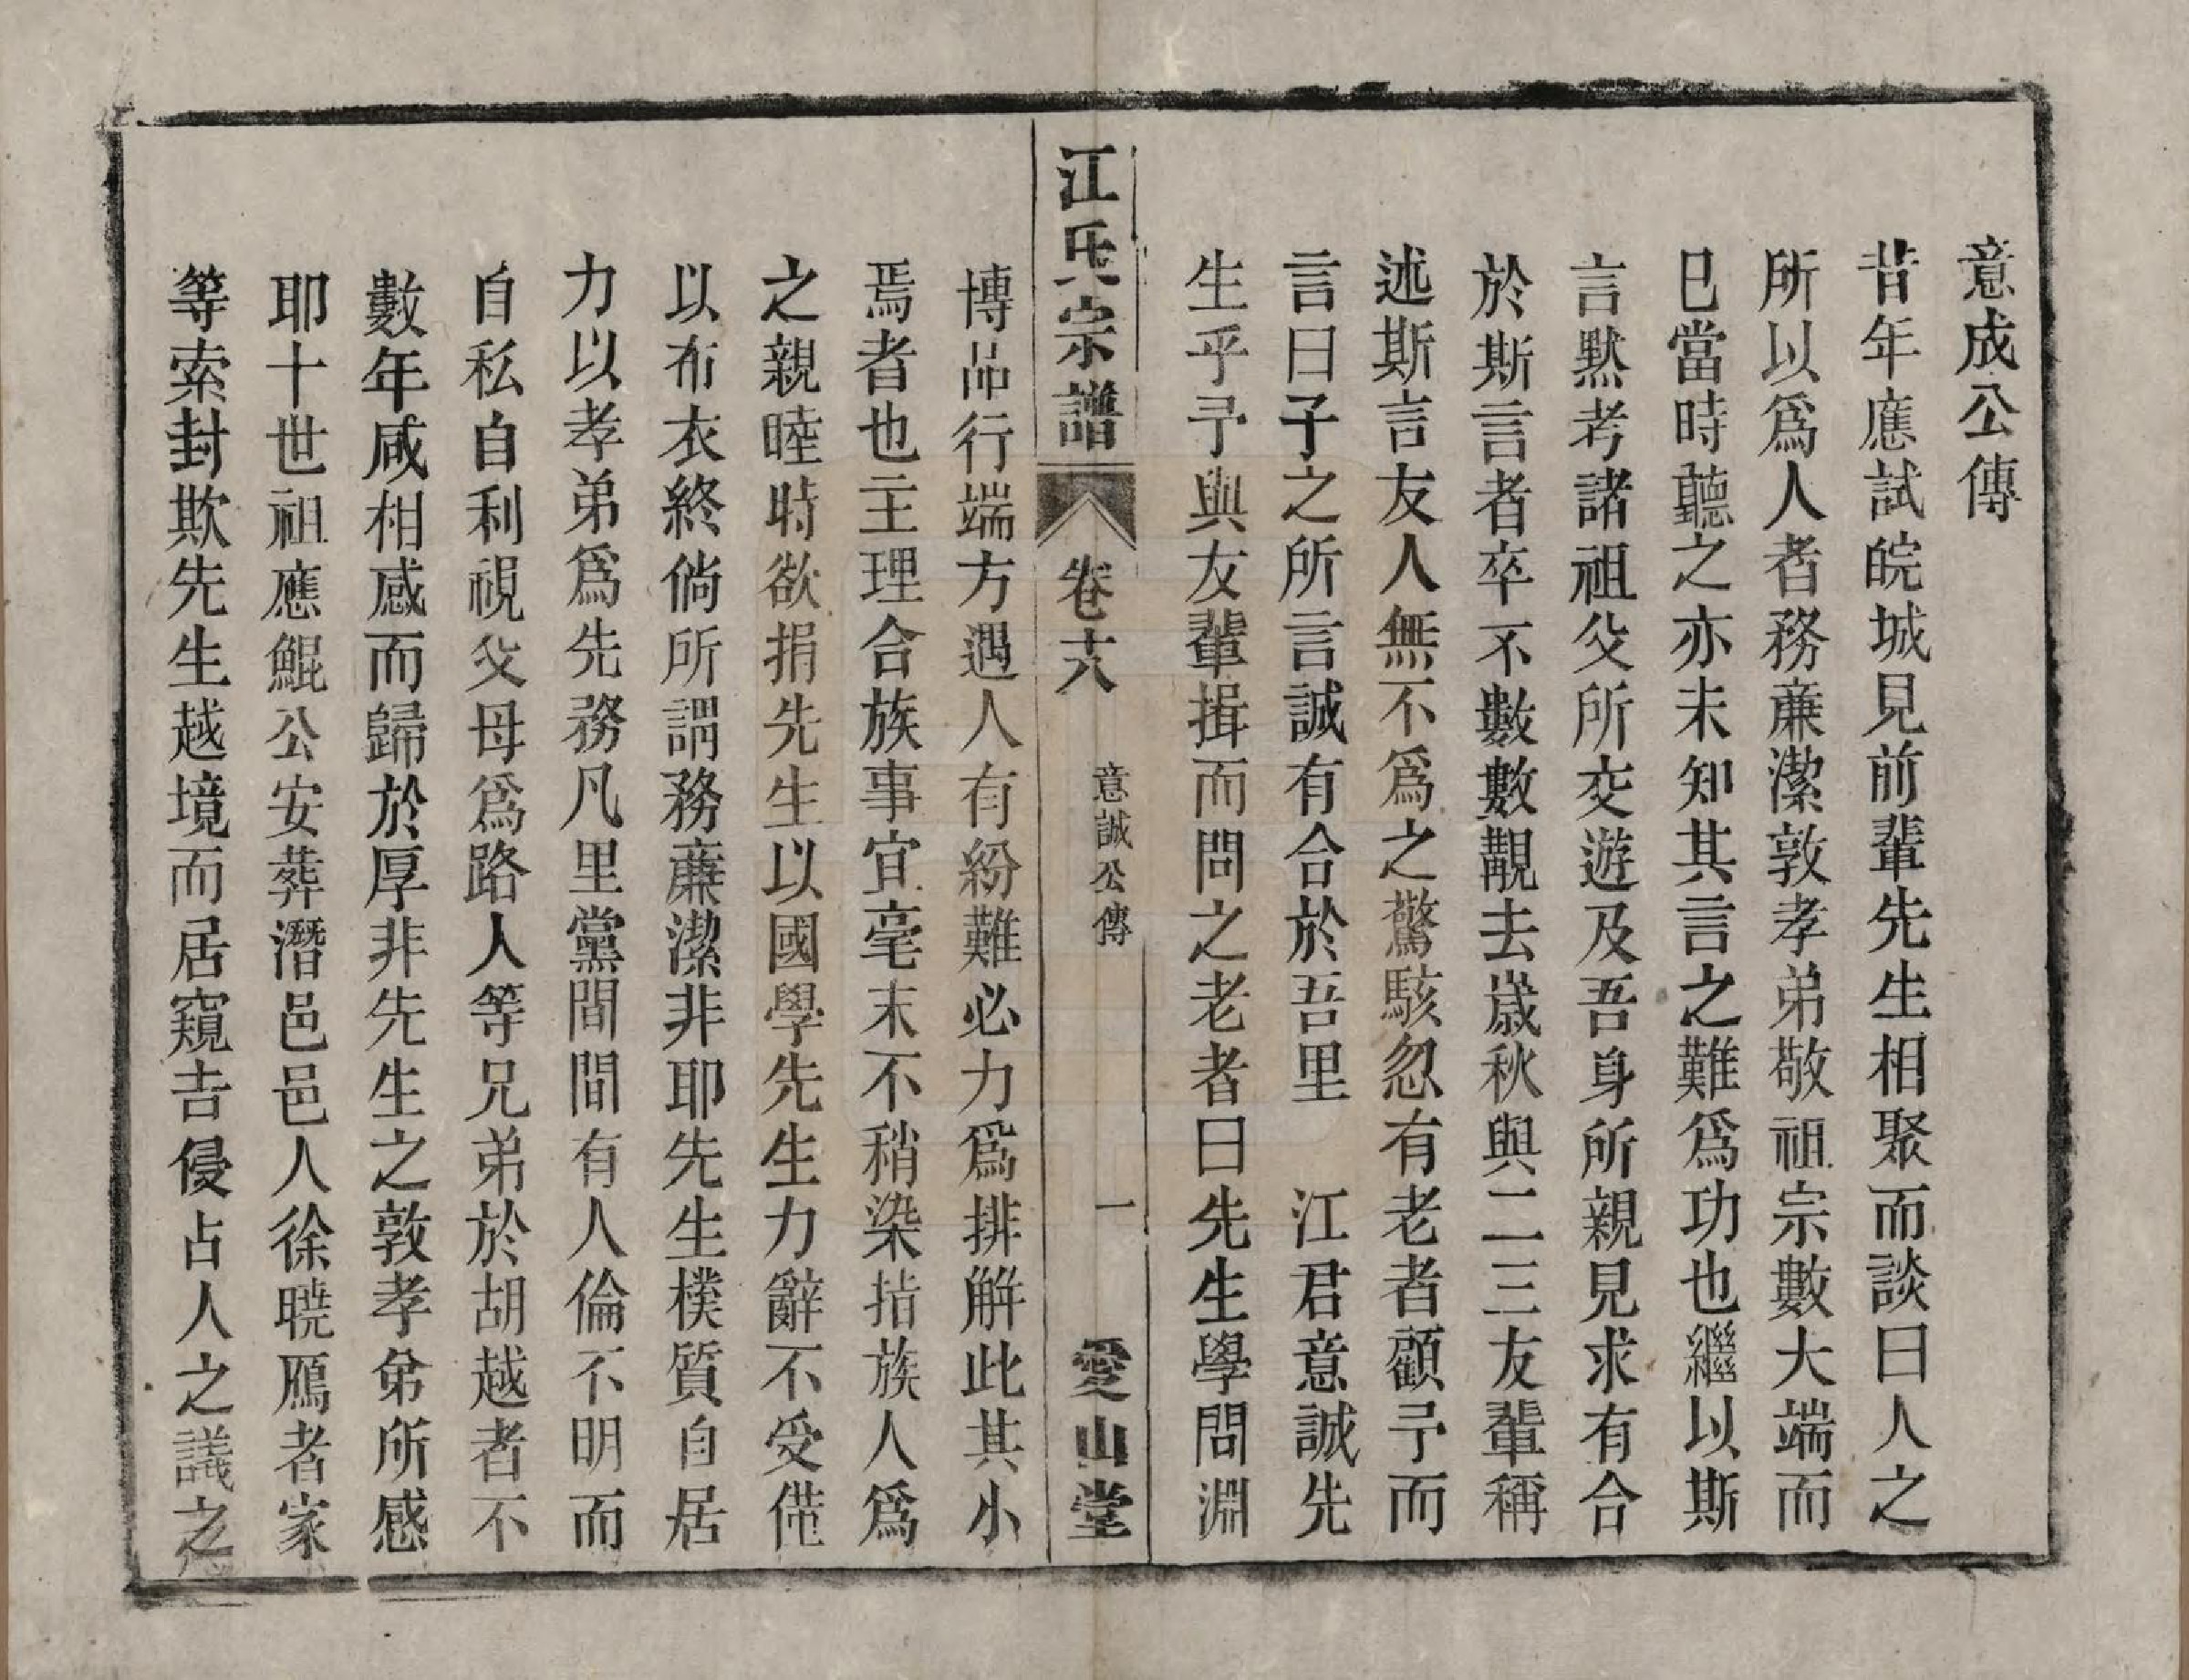 意成公傳
昔年應試皖城見前輩先生相聚而談曰人之
所以爲人者務廉潔敦孝弟敬祖宗數大端而
巳當時聽之亦未知其言之難爲功也繼以斯
言默考諸祖父所交遊及吾身所親見求有合
於斯言者卒不數數觀去歲秋與二三友輩稱
述斯言友人無不爲之驚駭忽有老者顧予而
言曰子之所言誠有合於吾里 江君意誠先
生乎予與友輩揖而問之老者曰先生學問淵
江氏宗譜 卷十八 意誠公傳 一 愛山堂
博品行端方遇人有紛難必力爲排解此其小
焉者也主理合族事宜毫末不稍染指族人爲
之親睦時欲捐先生以國學先生力辭不受僅
以布衣終倘所謂務廉潔非耶先生樸質自居
力以孝弟爲先務凡里黨間間有人倫不明而
自私自利視父母爲路人等兄弟於胡越者不
數年咸相感而歸於厚非先生之敦孝弟所感
耶十世祖應鯤公安葬潛邑邑人徐曉鴈者家
等索封欺先生越境而居窺吉侵占人之議之